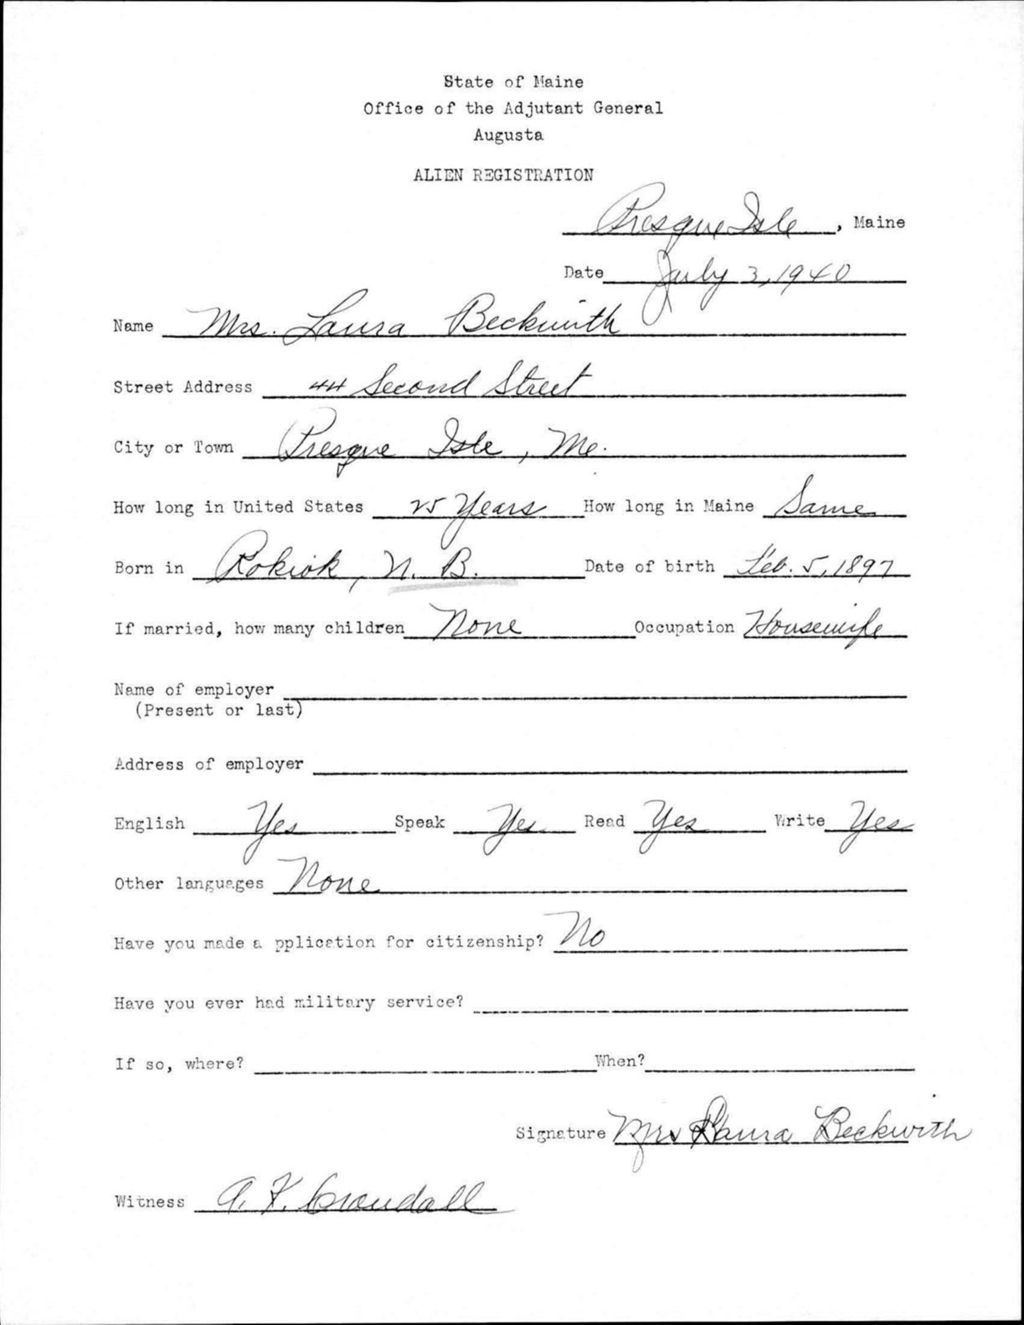 State of Maine
Office of the Adjutant General
Augusta
ALIEN REGISTRATION
Presque Isle, Maine
Date July 3, 1940
Name Mrs. Laura Beckwith
Street Address 44 Second Street
City or Town Presque Isle, Me.
How long in United States 25 Years How long in Maine Same
Born in Rokiok, N. B. Date of birth Feb. 5, 1897
If married, how many children None Occupation Housewife
Name of employer
(Present or last)
Address of employer
English Yes Speak Yes Read Yes Write Yes
Other languages None
Have you made a pplication for citizenship? No
Have you ever had military service?
If so, where? When?
Signature Mrs Laura Beckwith
Witness A. F. Crandall